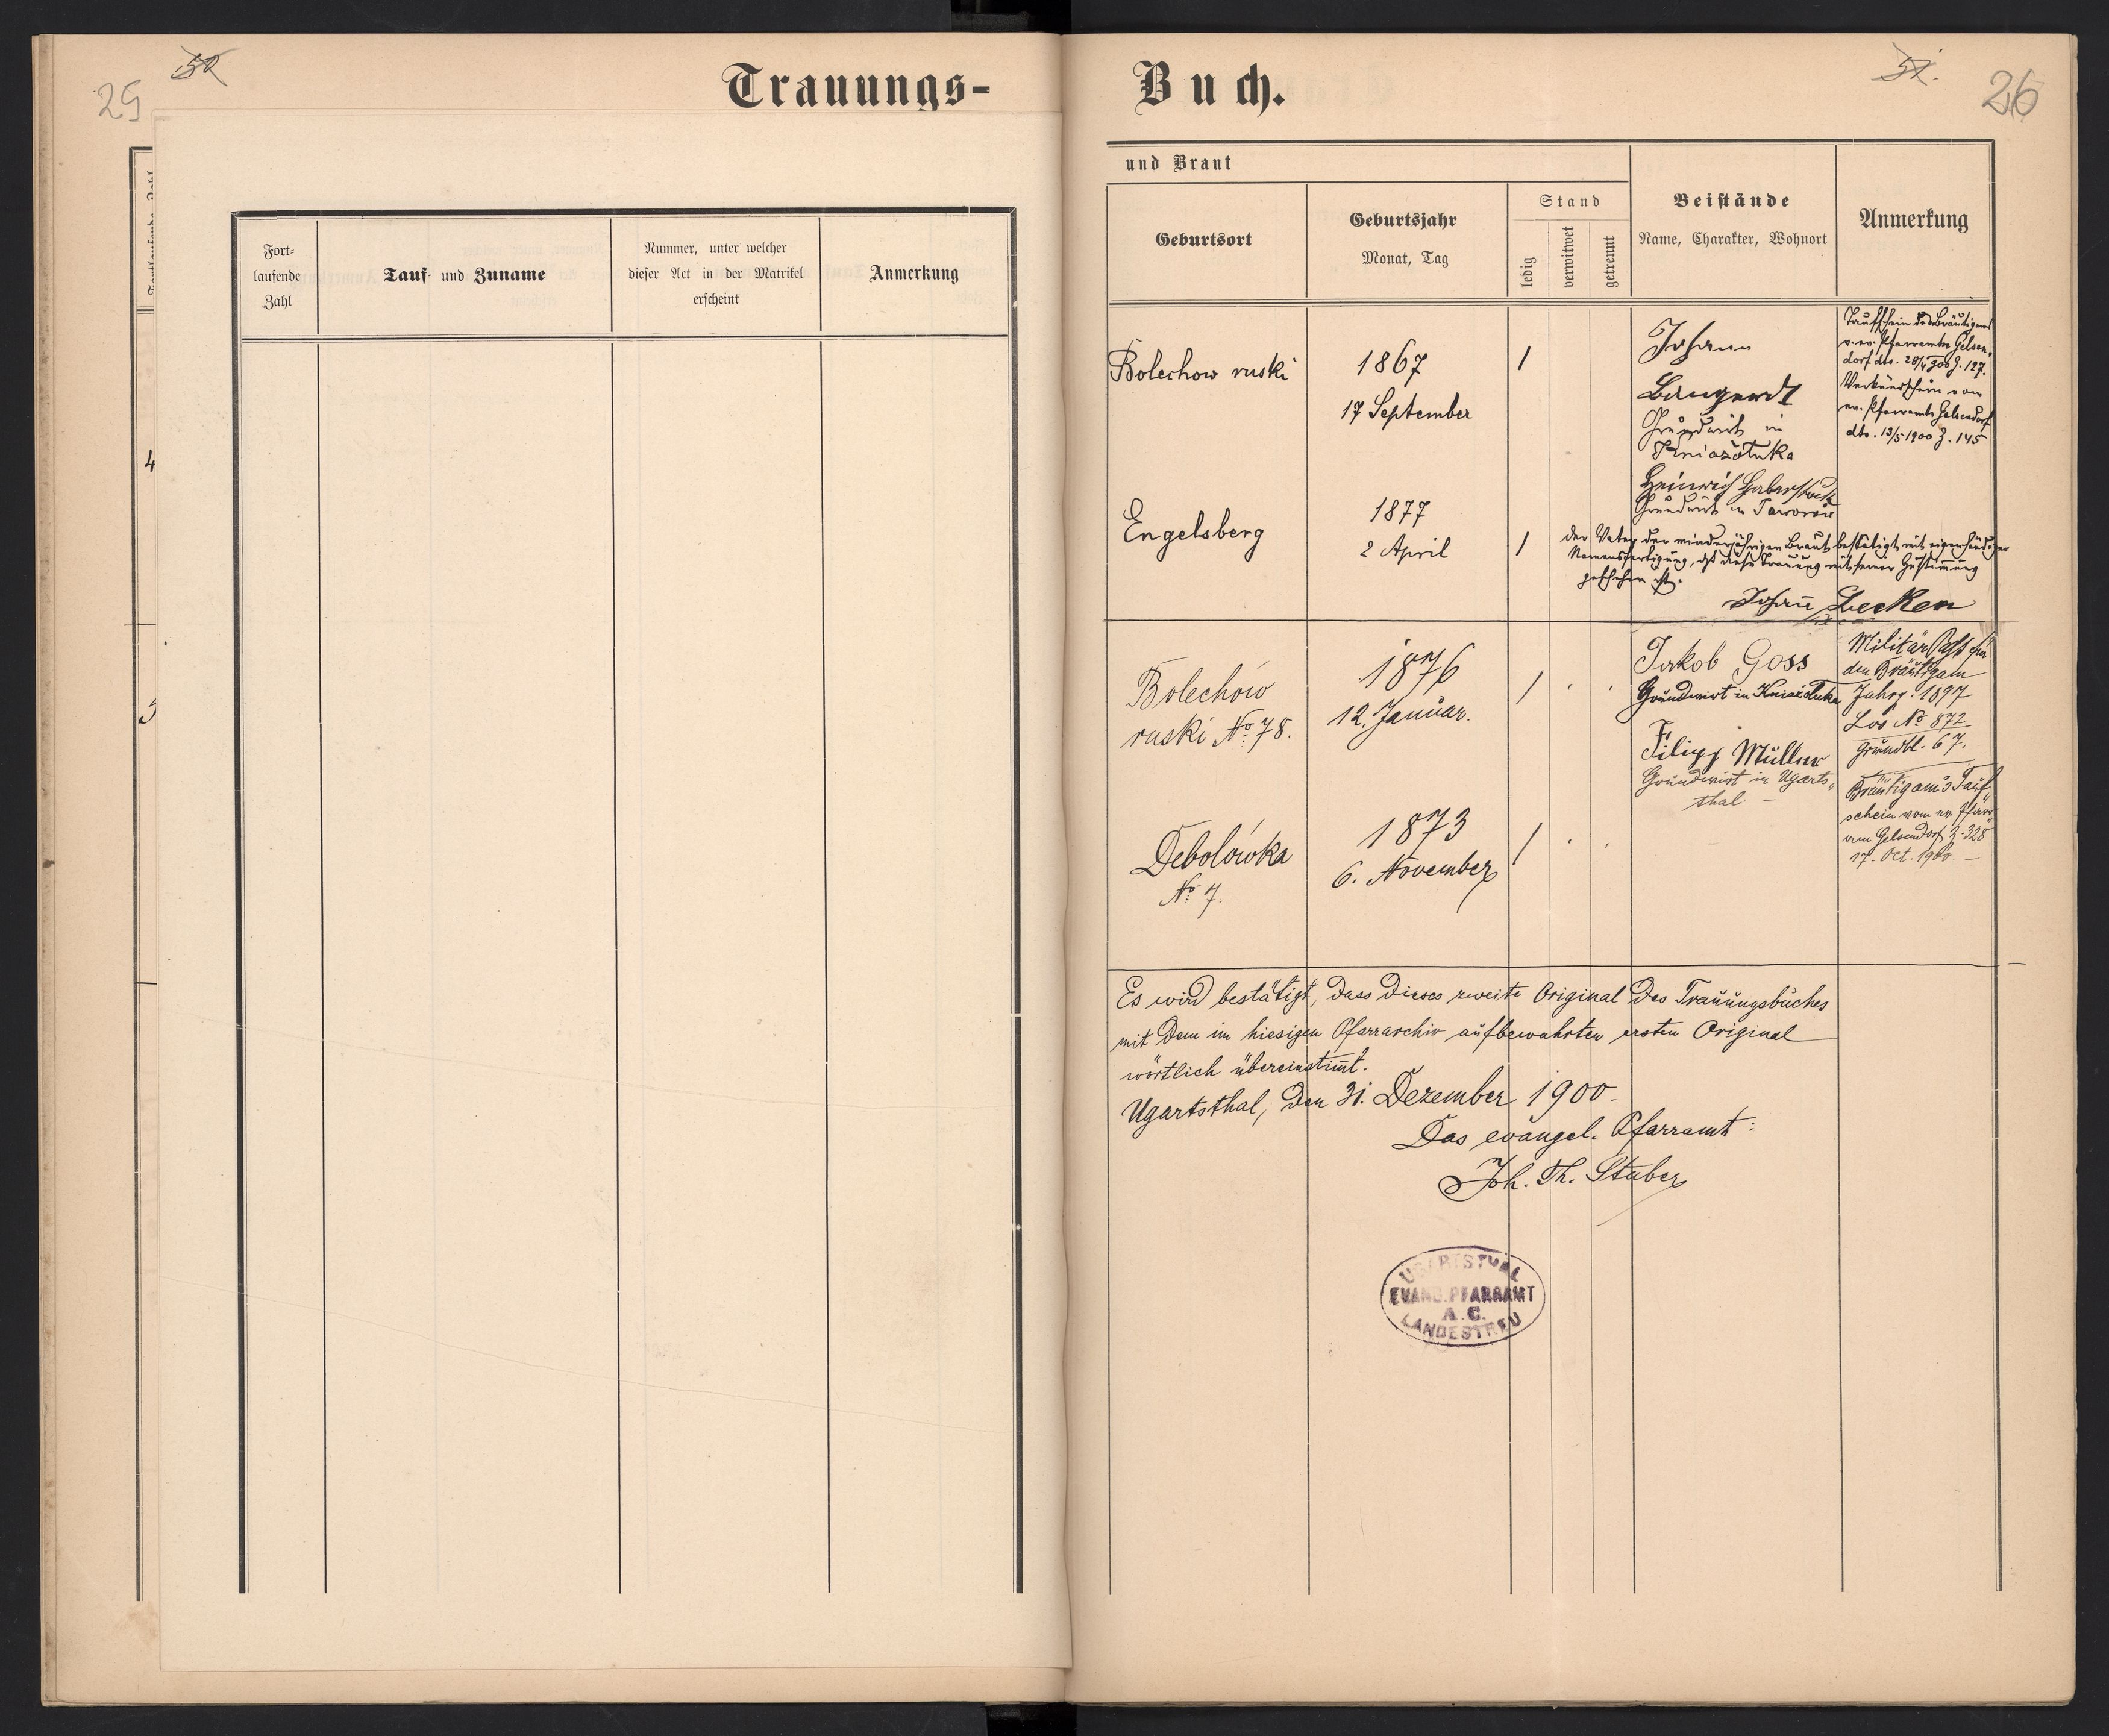 25
50
Trauungs-
Fort-
laufende
Zahl
Tauf- und Zuname
Nummer, unter welcher
dieser Act in der Matrikel
erscheint
Anmerkung
4
5
Buch.
51.
26
und Braut
Geburtsort
Geburtsjahr
Monat, Tag
Stand
ledig
verwitwet
getrennt
Beistände
Name, Charakter, Wohnort
Anmerkung
Bolechow ruski
1867
17 September
1
Johann
Bangerdt
Grundwirt in
Kniazołuka
Heinrich Haberstock
Grundwirt in
Taufschein des Bräutigams
v. ev. Pfarramte Gelsen-
dorf dto. 28/4 900 Z. 127.
Verkündschein vom
ev. Pfarramte Gelsendorf
dto. 13/5 1900 Z. 145
Engelsberg
1877
2 April
1
der Vater der minderjährigen Braut bestätigt mit eigenhändiger
Namensfertigung, dß diese Trauung mit seiner Zustimmung
geschehen ist.
Johann Lecken
Bolechów
ruski No 78.
1876
12. Januar.
1
Jakob Goss
Grundwirt in Kniaźołuka
Filipp Müller
Grundwirt in Ugarts-
thal
Militär Paß für
den Bräutigam
Jahrg. 1897
Los No 872
Grundbl. 67.
Bräutigam's Tauf-
schein vom ev. Pfarr
Gelsendorf Z. 328
17. Oct. 1900.
Debolówka
No 7.
1873
6. November
1
Es wird bestätigt, dass dieses zweite Original des Trauungsbuches
mit dem im hiesigen Pfarrarchiv aufbewahrten ersten Original
wörtlich übereinstimt.
Ugartsthal, den 31. Dezember 1900.
Das evangel. Pfarramt:
Joh. Th. Stuber
UGARTSTHAL
EVANG. PFARRAMT
A. C.
LANDESTREU